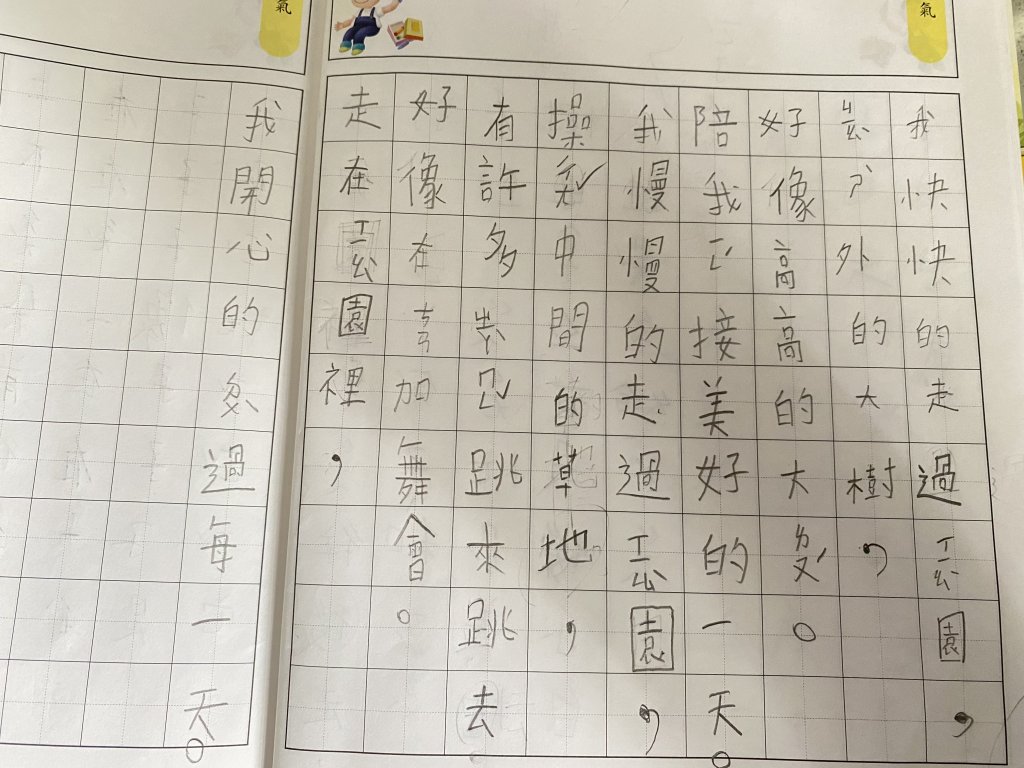 氣
氣
我快快的走過公園，
外的大樹，
好像高高的大。
陪我接美好的一天。
我慢慢的走過公園，
操中間的草地，
有許多跳來跳去
好像在加舞會。
走在公園裡，
我開心的過每一天。